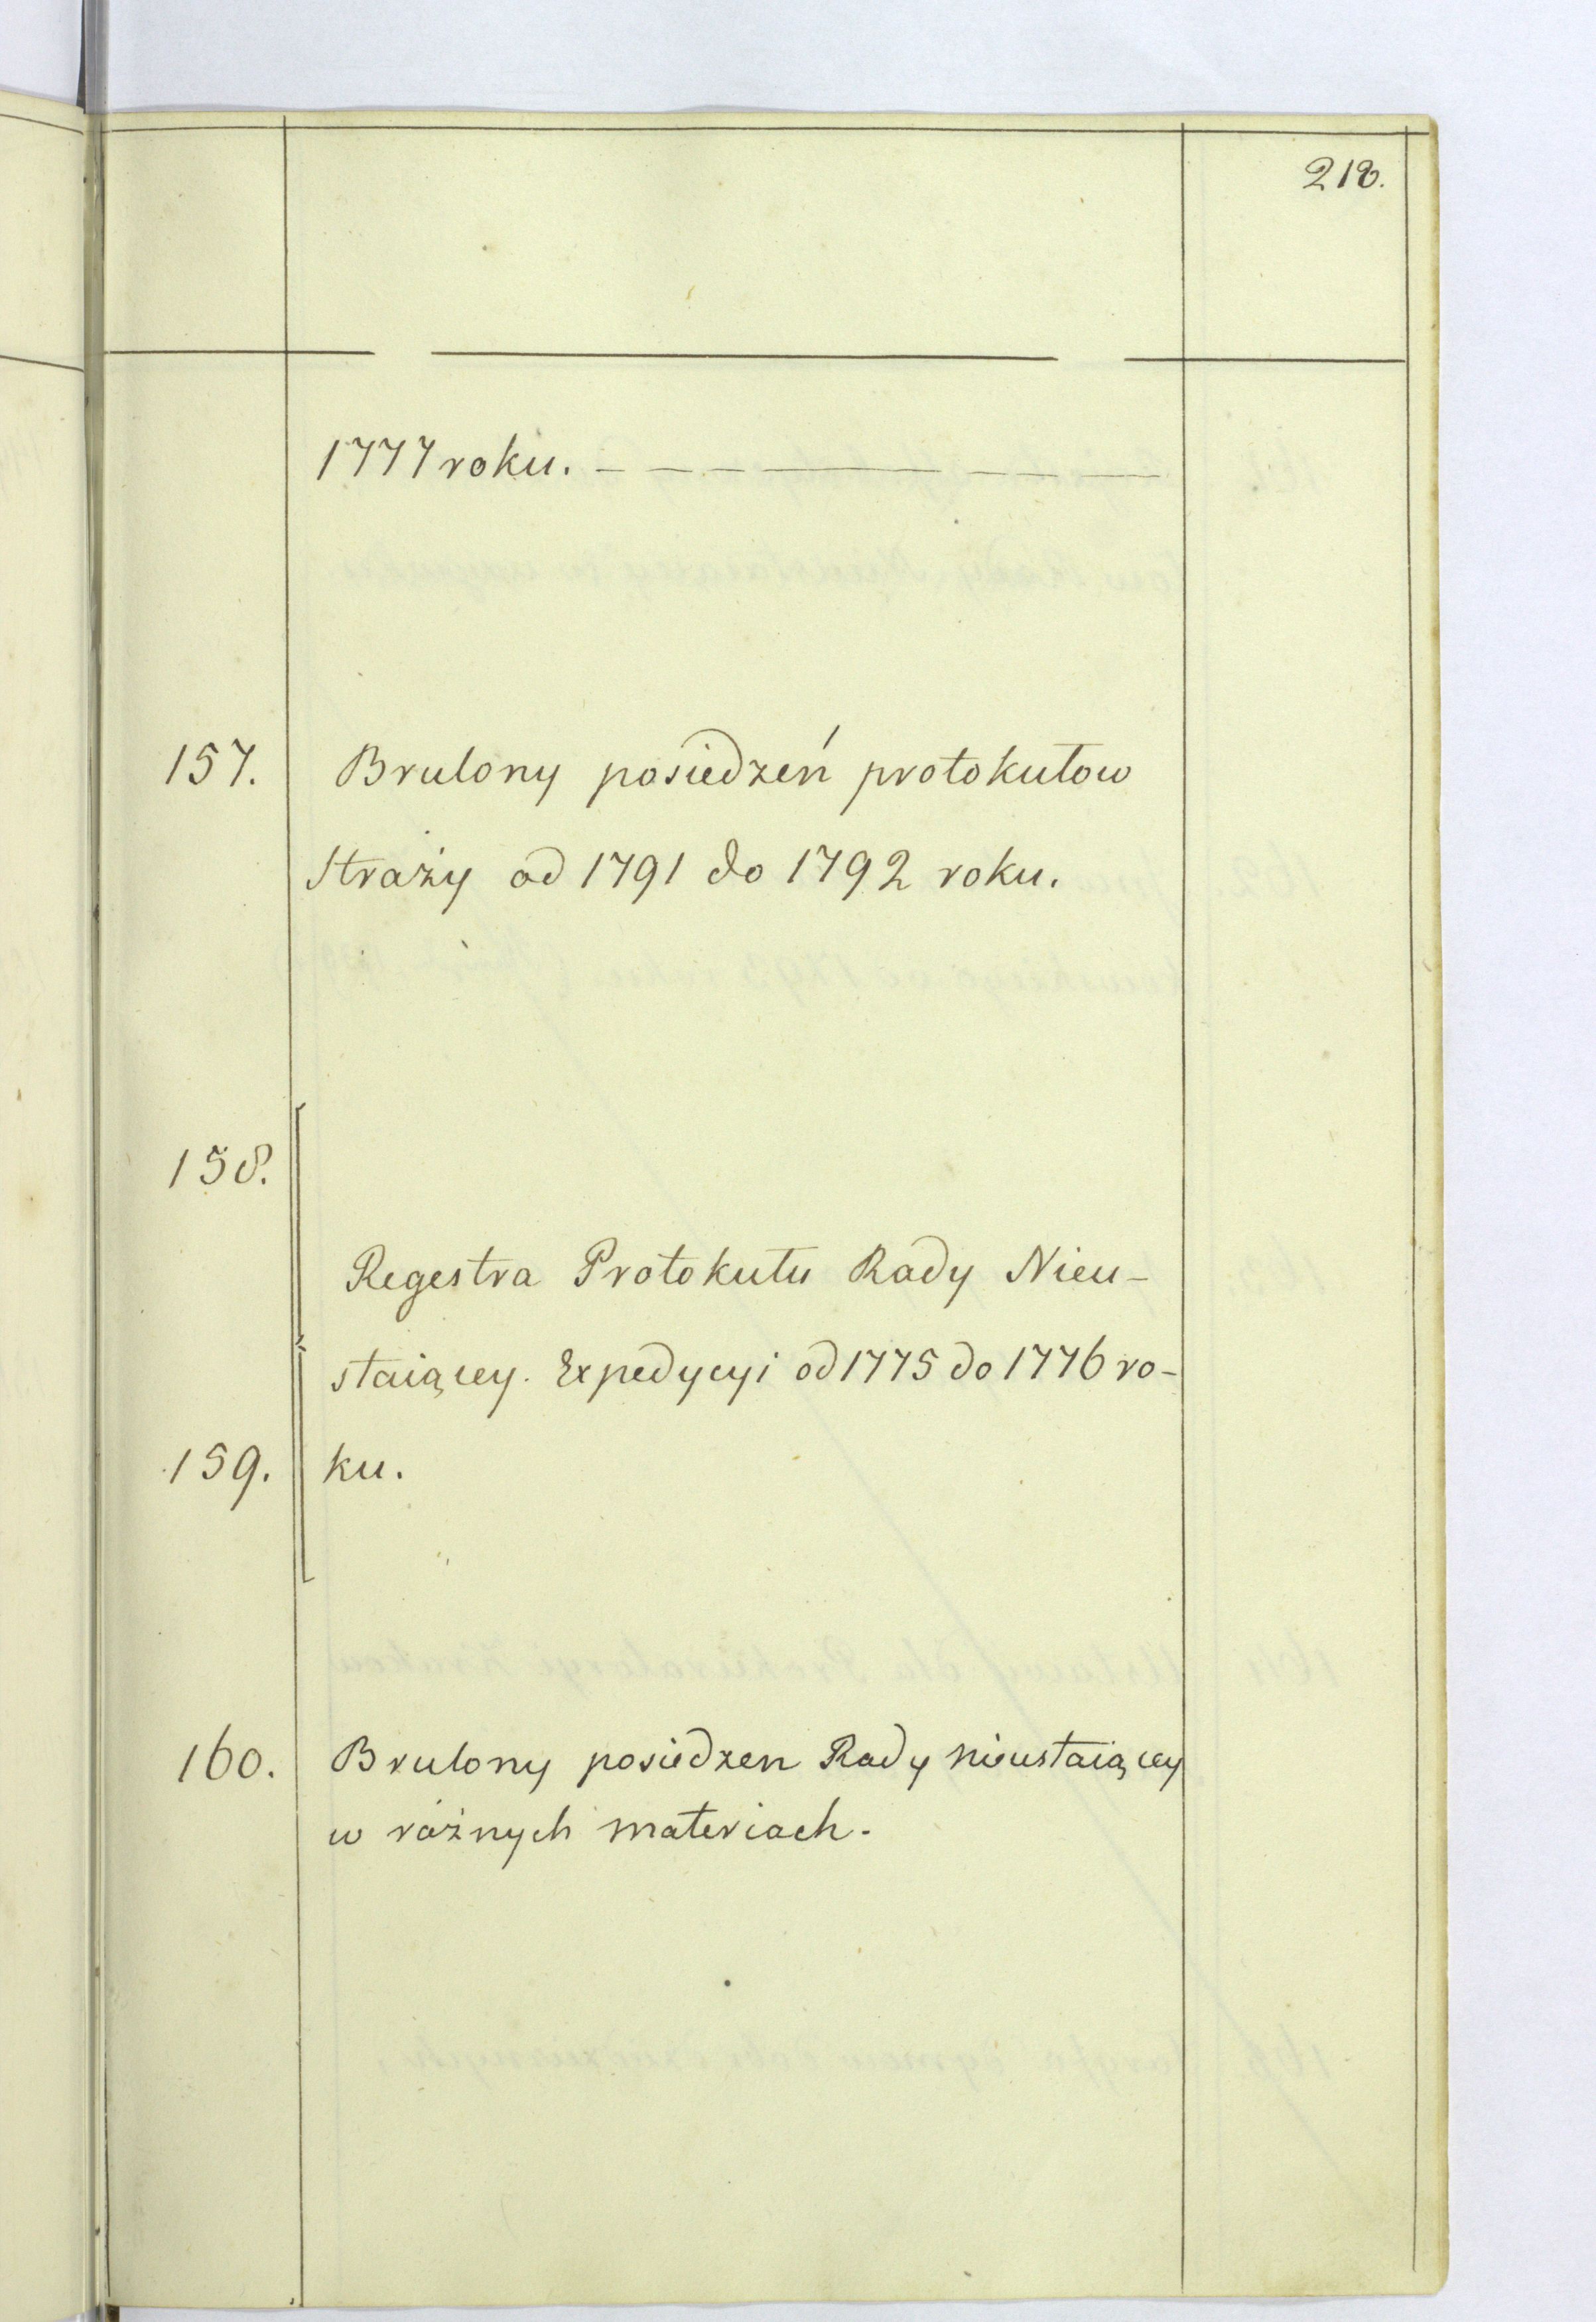 218.
1777 roku. – – – —— – – ——
157. Brulony posiedzeń protokułow
Straży od 1791 do 1792 roku.
158.
Regestra Protokułu Rady Nieu-
staiącey. Expedycyi od 1775 do 1776 ro-
159. ku.
160. Brulony posiedzen Rady nieustaiącey
w rożnych materiach.